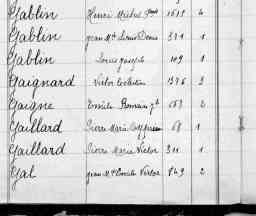 Gablin Henri Michel 1619 2
Gablin Jean Mie Louis Denis 371 1
Gablin Louis Joseph 109 1
Gaignard Victor 1376 3
Gaigne Emile Romain 2
Gaillard Pierre Marie 68 1
Gaillard Pierre Marie Victor 311 1
Gal Jean Mie Emile Victor 849 2